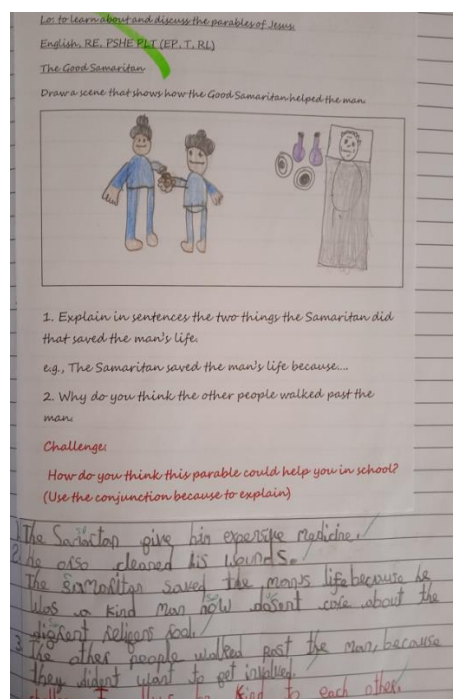 Lo: to learn about and discuss the parables of Jesus.
English, RE, PSHE PLT (EP, T, RL)
The Good Samaritan
Draw a scene that shows how the Good Samaritan helped the man.
1. Explain in sentences the two things the Samaritan did
that saved the man's life.
e.g., The Samaritan saved the man's life because....
2. Why do you think the other people walked past the
man.
Challenge:
How do you think this parable could help you in school?
(Use the conjunction because to explain)
1 The give him medicine.
2 He also cleaned his wounds.
The saved the man's life because he
Was a kind man how dosent care about the
3 The other people walked past the man, because
they dident want to get involved.
kind to each other